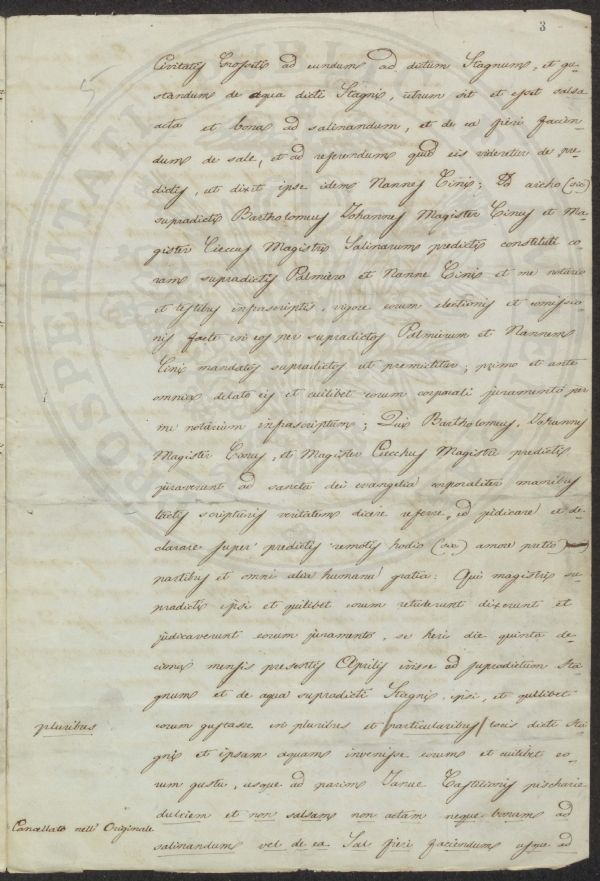 3
Civitatis Grosseti ad eundum ad dictum Stagnum, et gu-
standum de aqua dicti Stagni, utrum sit et esset salsa
acta et bona ad salinandum, et de ea fieri facien-
dum de sale, et ad referendum quid eis videretur de pre-
dictis, ut dixit ipse idem Nannes Cini; Id archo (sic)
supradicti Bartholomeus Johannes Magister Cinus et Ma-
gister Cieccus Magistri Salinarum predicti constituti co-
ram supradictis Palmiero et Nanne Cini et me notario
et testibus infrascriptis, vigore eorum electionis et comissio-
nis facte in eos per supradictos Palmierum et Nannem
Cini mandatis supradictis ut premictitur; primo et ante
omnia delato eis et cuilibet eorum corporali juramento per
me notarium infrascriptum; Qui Bartholomeus, Johannes
Magister Conus, et Magister Ciecchus Magistri predicti
juraverunt ad sancta dei evangelia corporaliter manibus
tactis scripturis veritatem dicere referre, et judicare et de-
clarare super predictis remotis hodio (sic) amore pretio
partibus et omni alia humana gratia: Qui magistri su-
pradicti ipsi et quilibet eorum retulerunt dixerunt et
judicaverunt eorum juramento, se heri die quinta de-
cima mensis presentis Aprilis ivisse ad supradictum sta-
gnum et de aqua supradicti Stagni ipsi, et quilibet
pluribus
eorum gustasse in pluribus et particularibus locis dicti Sta-
gni et ipsam aquam invenisse eorum et cuilibet eo-
rum gustu, usque ad parim Janue Castilionis pischarie
dulciem et non salsam non actam neque bonam ad
Cancellato nell' Originale
salinandum vel de ea Sal fieri faciendum usque ad